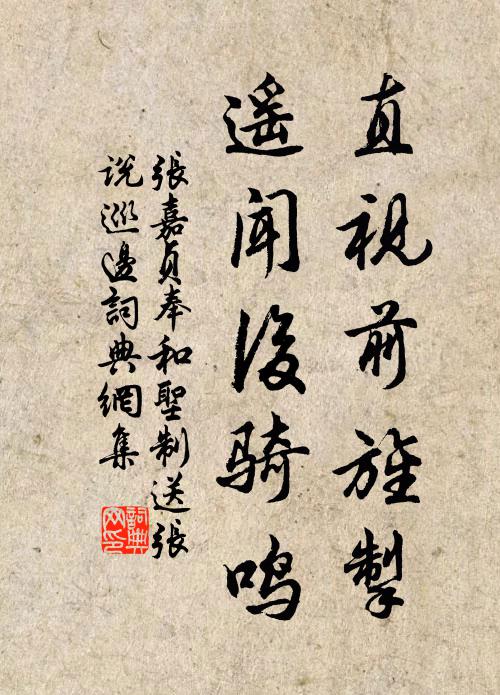 直視前旌掣
遥闻後骑鸣
張嘉貞奉和聖制送張
说巡邊詞典網集
詞典网印